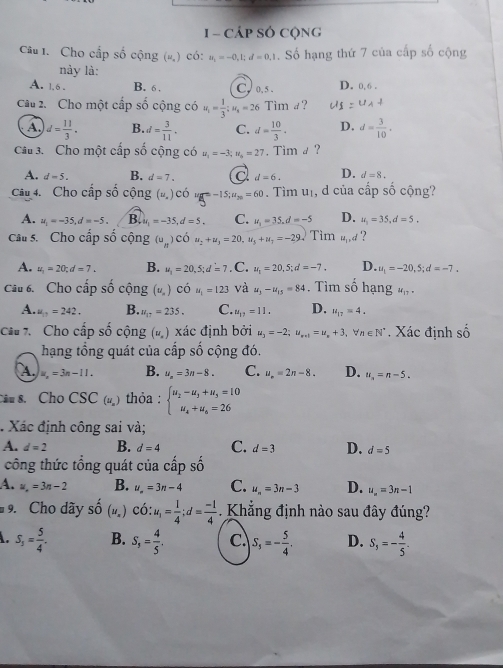 I – CẤP SỐ CỘNG
Câu 1. Cho cấp số cộng (uₙ) có: u₁ = -0,1; d = 0,1. Số hạng thứ 7 của cấp số cộng
này là:
A. 1,6. B. 6. C. 0,5. D. 0,6.
Câu 2. Cho một cấp số cộng có u₁ = 1/3; u₈ = 26 Tìm d?
A. d = 11/3. B. d = 3/11. C. d = 10/3. D. d = 3/10.
Câu 3. Cho một cấp số cộng có u₁ = -3; u₆ = 27. Tìm d ?
A. d = 5. B. d = 7. C. d = 6. D. d = 8.
Câu 4. Cho cấp số cộng (uₙ) có u₅ = -15; u₂₀ = 60. Tìm u₁, d của cấp số cộng?
A. u₁ = -35, d = -5. B. u₁ = -35, d = 5. C. u₁ = 35, d = -5 D. u₁ = 35, d = 5.
Câu 5. Cho cấp số cộng (uₙ) có u₂ + u₃ = 20, u₅ + u₇ = -29. Tìm u₁, d?
A. u₁ = 20; d = 7. B. u₁ = 20,5; d = 7. C. u₁ = 20,5; d = -7. D. u₁ = -20,5; d = -7.
Câu 6. Cho cấp số cộng (uₙ) có u₁ = 123 và u₃ - u₁₅ = 84. Tìm số hạng u₁₇.
A. u₁₇ = 242. B. u₁₇ = 235. C. u₁₇ = 11. D. u₁₇ = 4.
Câu 7. Cho cấp số cộng (uₙ) xác định bởi u₃ = -2; uₙ₊₁ = uₙ + 3, ∀n ∈ N*. Xác định số
hạng tổng quát của cấp số cộng đó.
A. uₙ = 3n - 11. B. uₙ = 3n - 8. C. uₙ = 2n - 8. D. uₙ = n - 5.
Câu 8. Cho CSC (uₙ) thỏa : { u₂ - u₃ + u₅ = 10
u₄ + u₆ = 26
. Xác định công sai và;
A. d = 2 B. d = 4 C. d = 3 D. d = 5
công thức tổng quát của cấp số
A. uₙ = 3n - 2 B. uₙ = 3n - 4 C. uₙ = 3n - 3 D. uₙ = 3n - 1
9. Cho dãy số (uₙ) có: u₁ = 1/4; d = -1/4. Khẳng định nào sau đây đúng?
A. S₅ = 5/4. B. S₅ = 4/5. C. S₅ = -5/4. D. S₅ = -4/5.